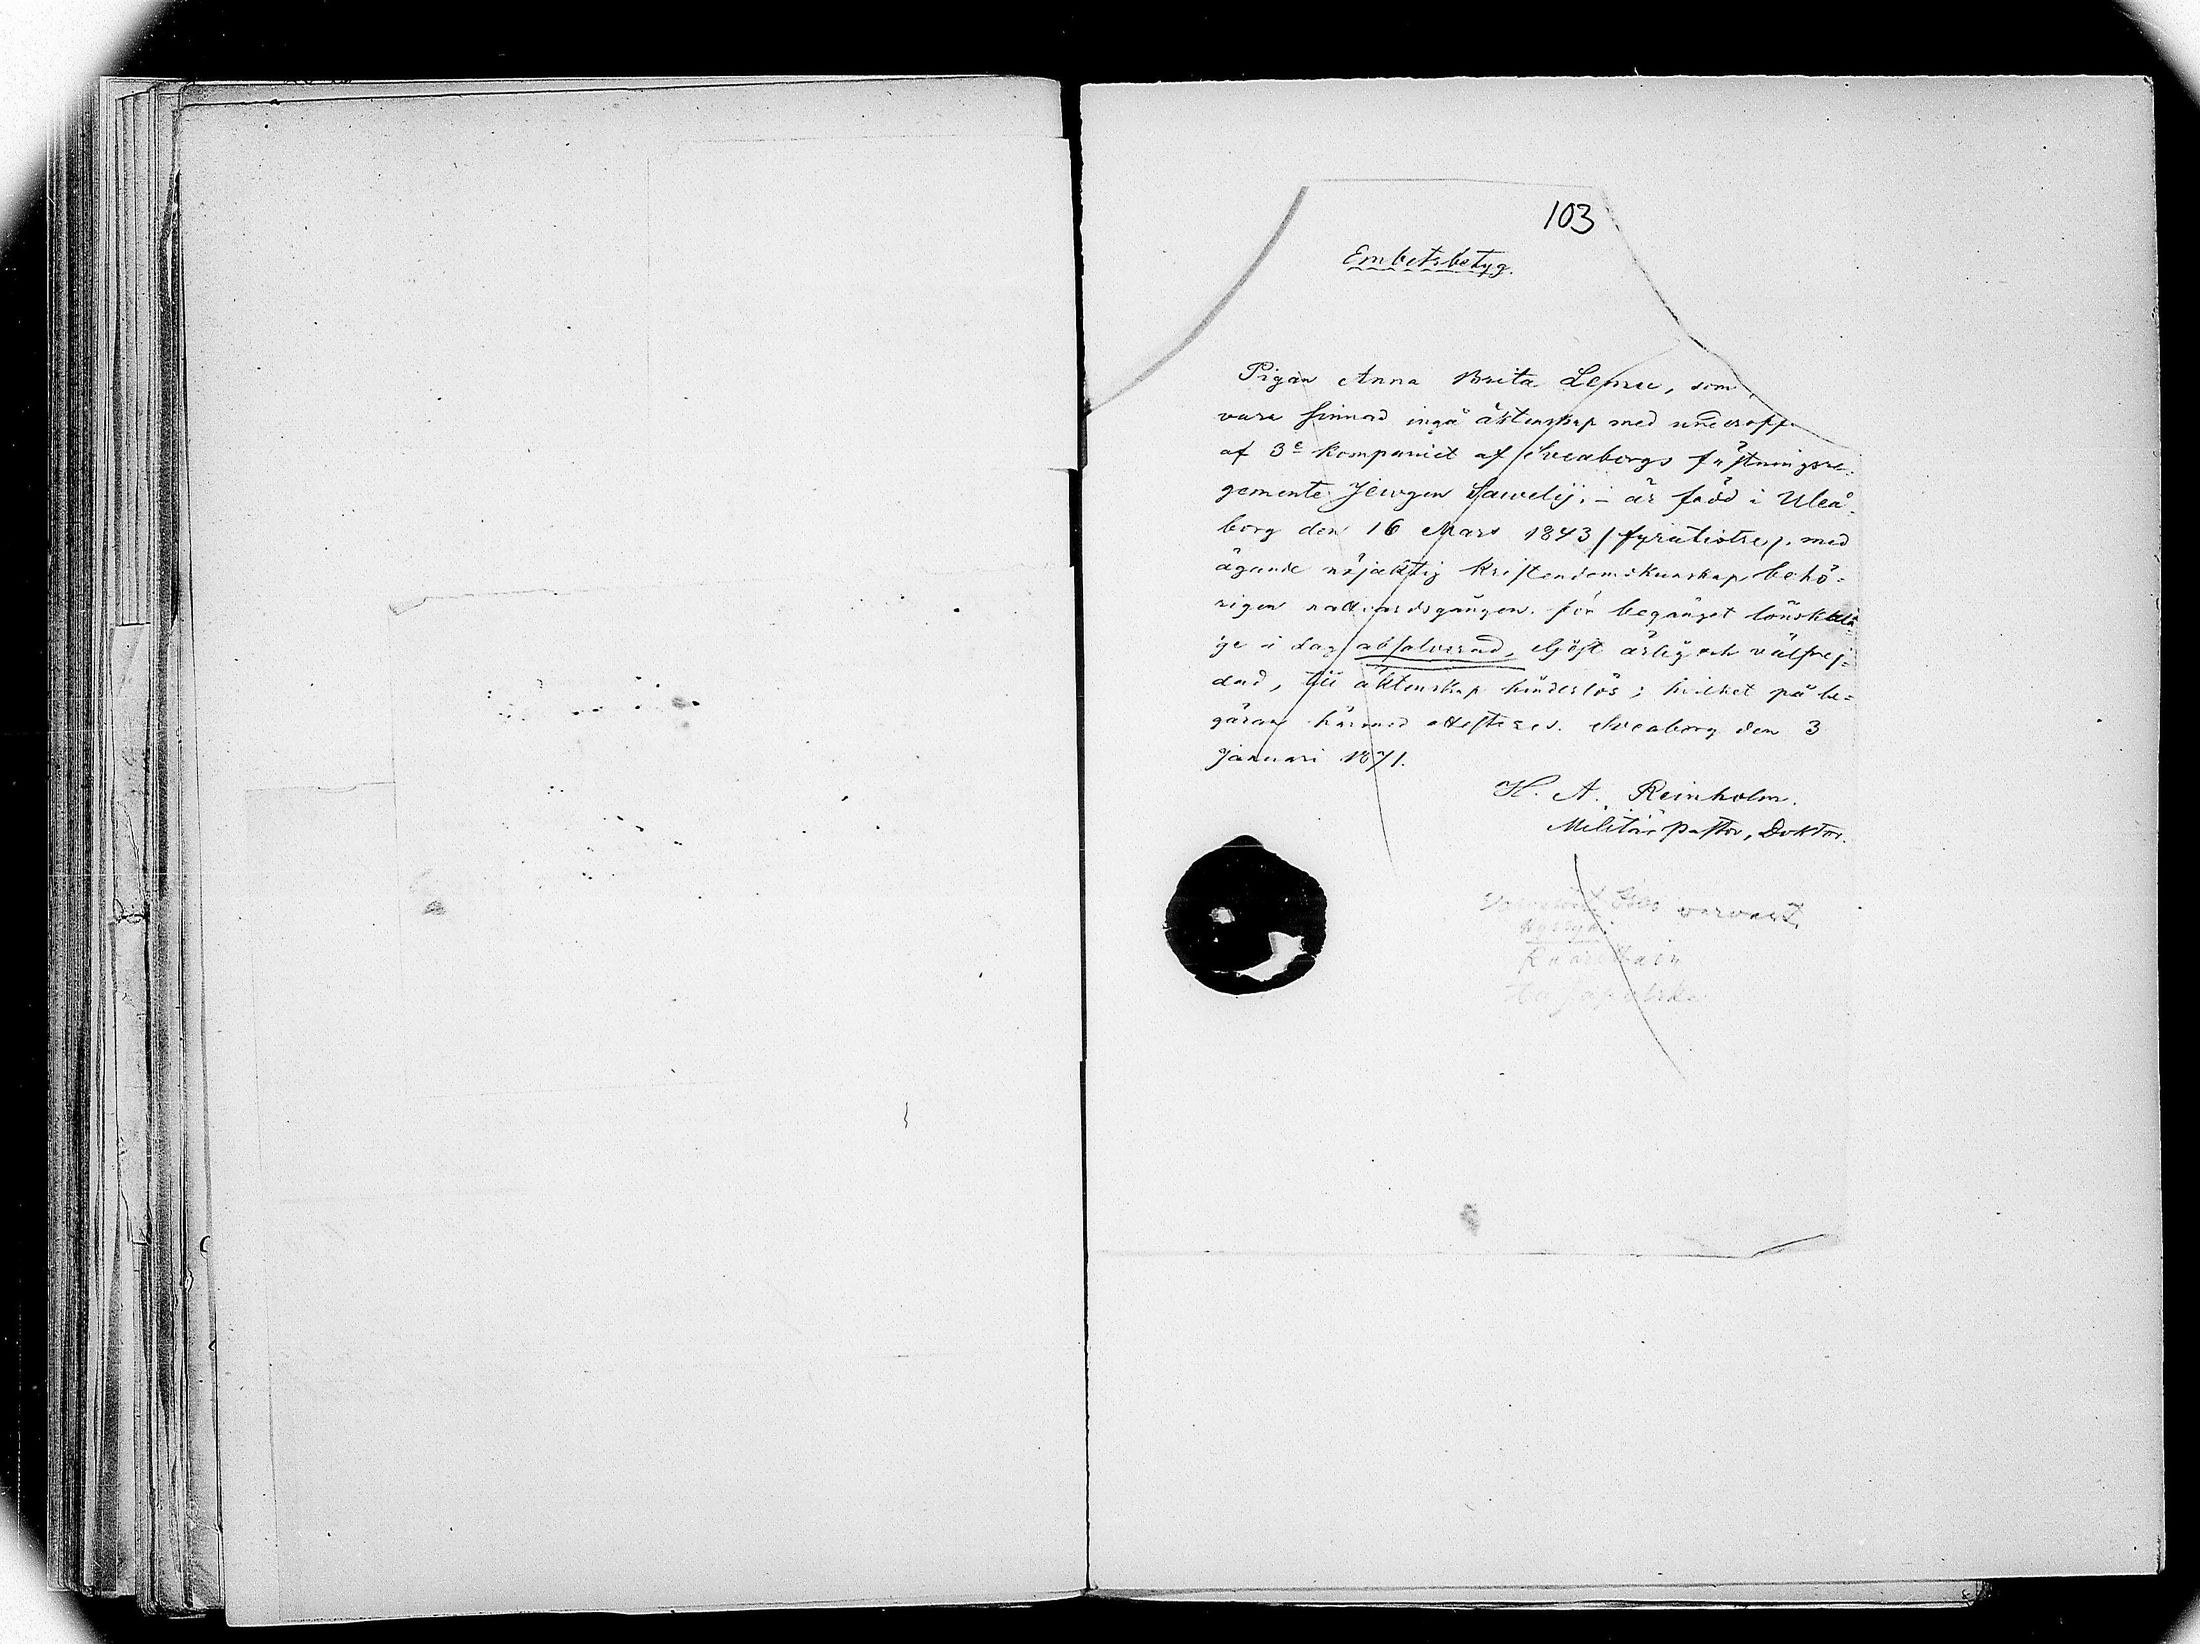 103
Embetsbetyg.
Pigan Anna Brita Lemu, som,
vare sinnad ingå äktenskap med underoff.
af 3e kompaniet af Sveaborgs fästningsre-
gemente Jewgen Sawelij. - är född i Uleå-
borg den 16 Mars 1843 /fyratiotre/. med
ägande nöjaktig kristendomskunskap behö-
rigen nattvardsgången. för begånget lönsk
ge i dag absolverad, eljest ärlig och välfrej-
dad, till äktenskap hinderlös; hvilket på be-
gäran härmed attesteres. Sveaborg den 3
Januari 1871.
H. A. Reinholm.
Militär pastor, Doktor.